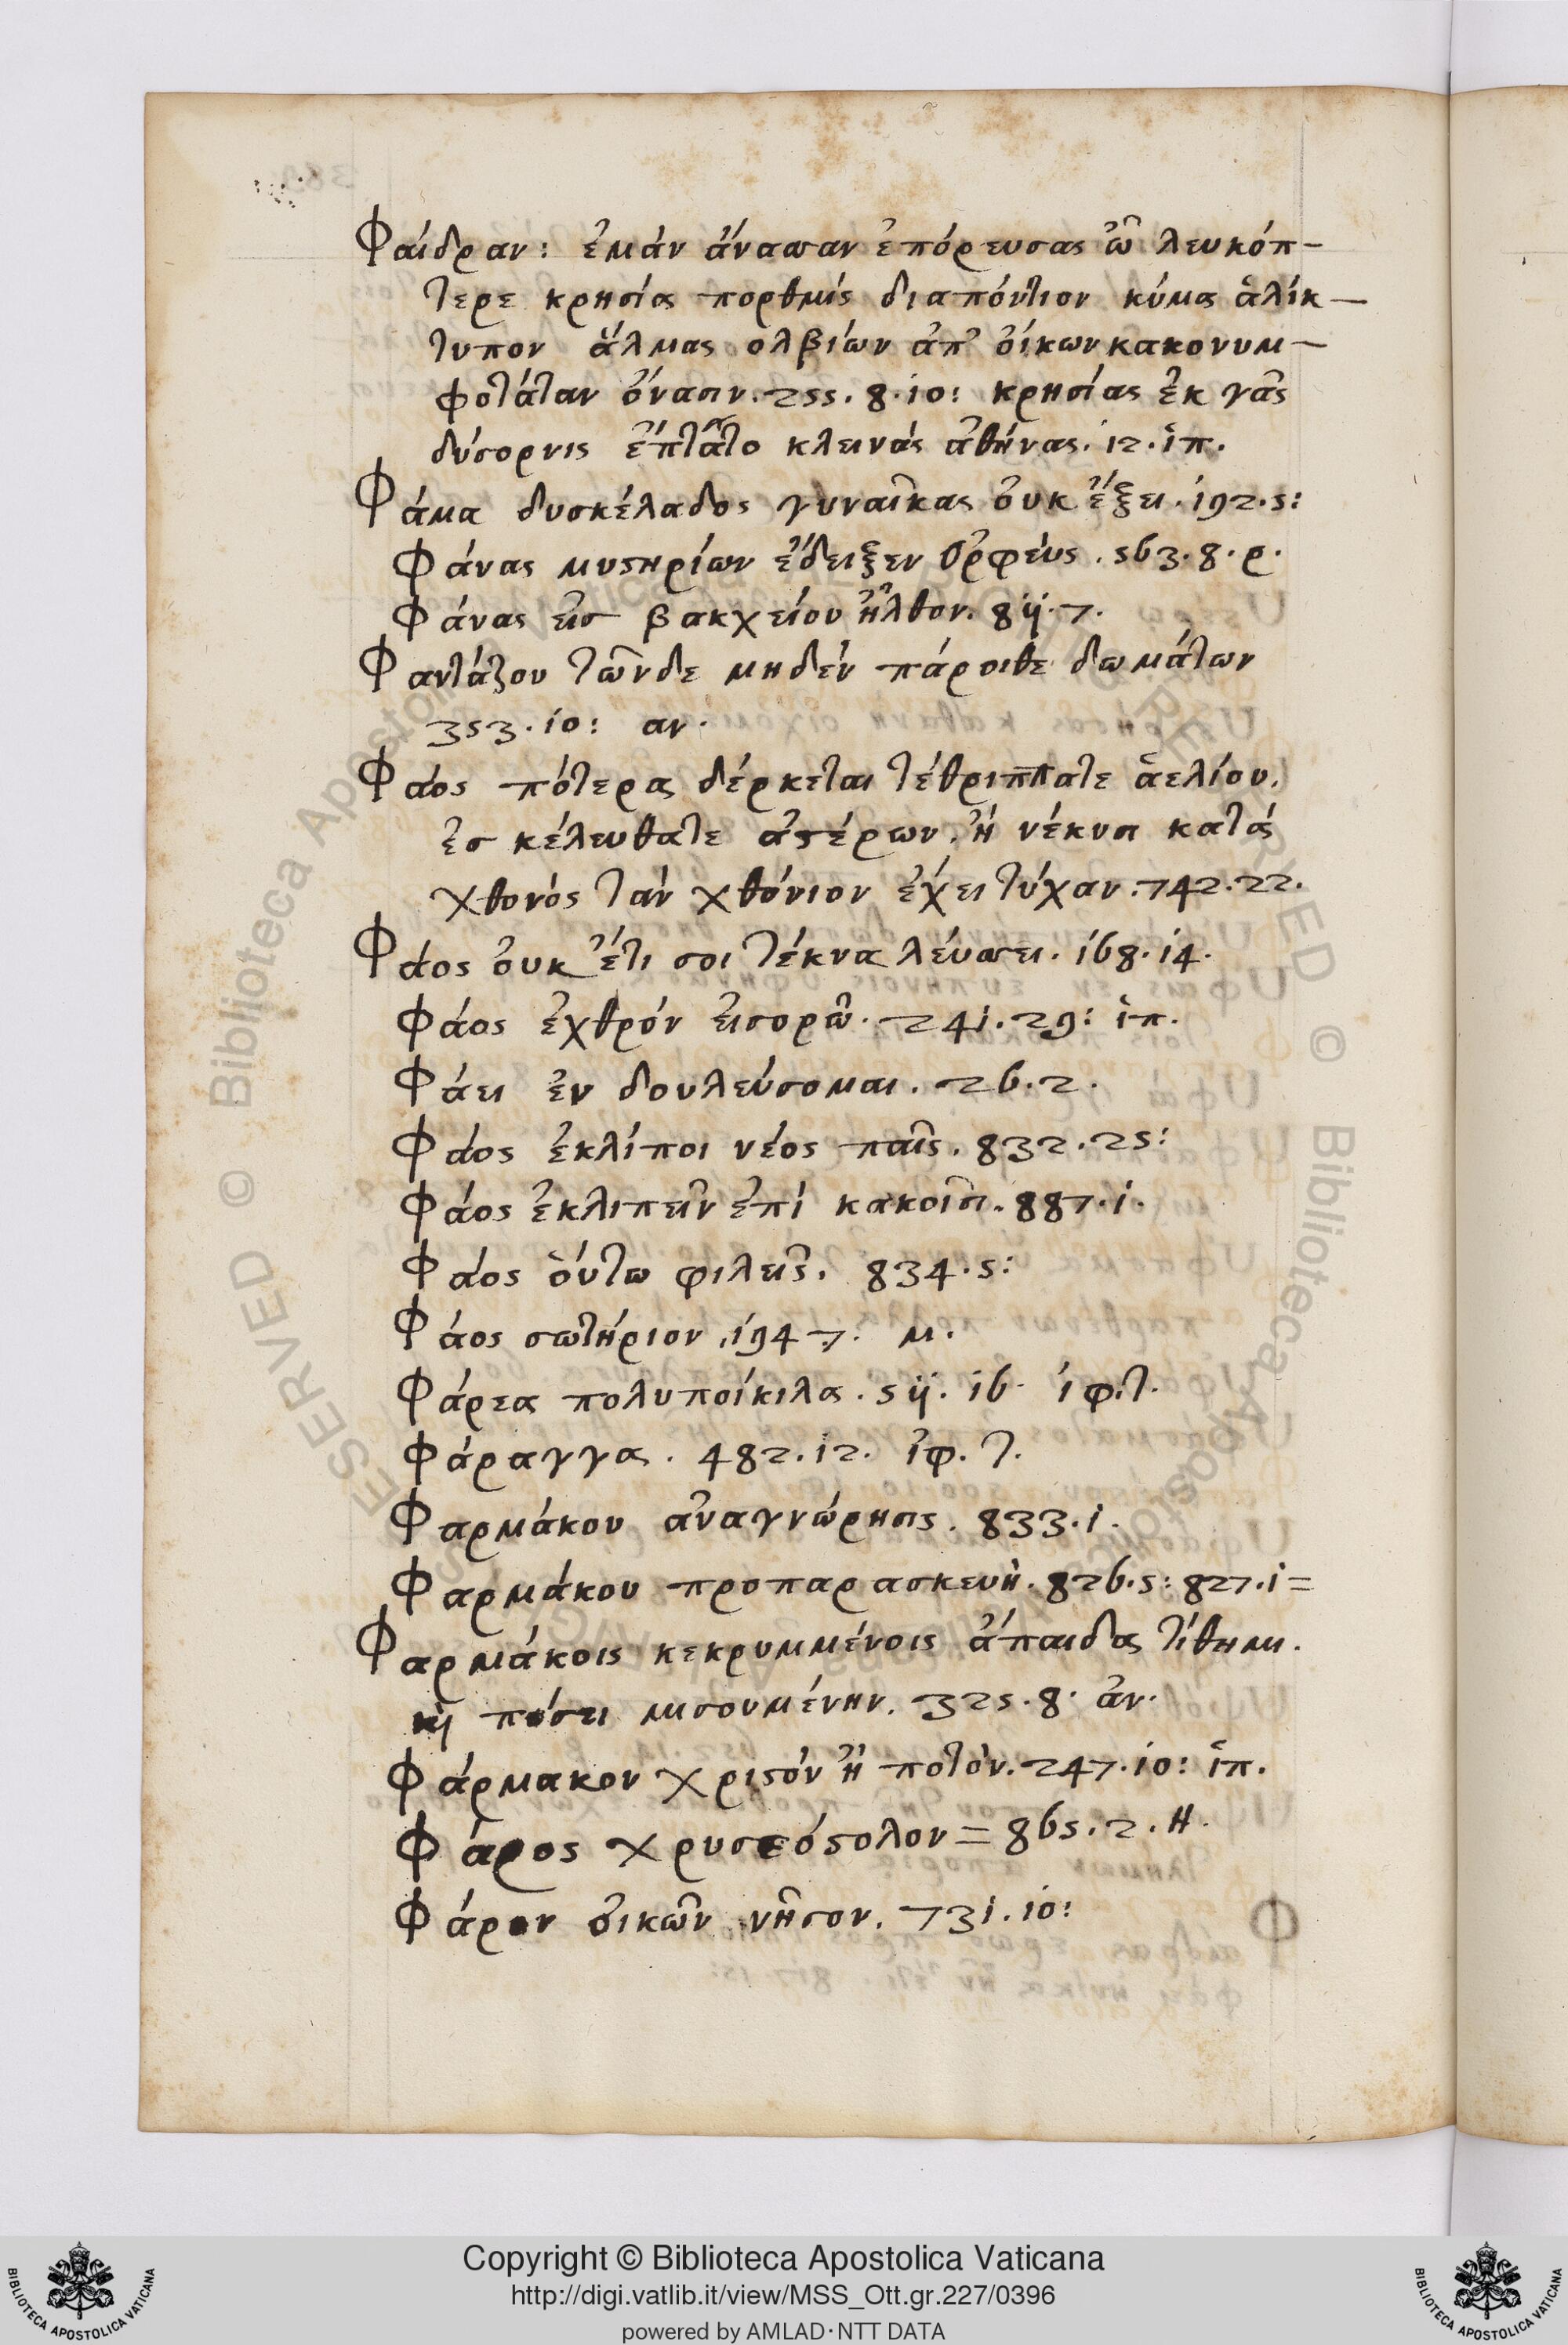 Φαίδραν: ἐμὰν ἄνασσαν ἐπόρευσας ὦ λευκόπ-
τερε κρησία πορθμὶς διαπόντιον κῦμα ἁλίκ-
τυπον ἅλμας ολβίων ἀπ' ὀίκων κακονυμ-
φοτάταν ὄνασιν. 255. 8. 10: κρησίας ἐκ γᾶς
δύσορνις ἔπτᾶτο κλεινὰς ἀθήνας. 12. ἱπ.
Φάμα δυσκέλαδος γυναῖκας ὀυκ ἕξει. 192. 5:
Φάνας μυστηρίων ἔδειξεν Ὀρφεὺς. 563. 8. ρ.
Φάνας εἰσ βακχείου ἦλθον. 811. 7.
Φαντάζου τῶνδε μηδὲν πάροιθε δωμάτων
353. 10: αν.
Φάος πότερα δέρκεται τέθριππατε ἀελίου.
ἐσ κέλευθατε ἀστέρων. ἢ νέκυσι κατὰ
χθονὸς τὰν χθόνιον ἔχει τύχαν. 742. 22.
Φάος ὀυκ ἔτι σοι τέκνα λεύσσει. 168. 14.
Φάος ἐχθρὸν εἰσορῶ. 241. 29: ἱπ.
Φάει ἐν δουλεύσομαι. 26. 2.
Φάος ἐκλίποι νέος παῖς. 832. 25:
Φάος ἐκλιπεῖν ἐπὶ κακοῖσι. 887. 1.
Φάος ὅυτω φιλεῖς. 834. 5:
Φάος σωτήριον. 194 7. μ.
Φάρεα πολυποίκιλα. 511. 16. ἰφ. τ.
Φάραγγα. 482. 12. ἰφ. τ.
Φαρμάκου ἀναγνώρησις. 833. 1.
Φαρμάκου προπαρασκευὴ. 826. 5: 827. 1=
Φαρμάκοις κεκρυμμένοις ἄπαιδα τίθημι.
καὶ πόσει μισουμένην. 325. 8. ἀν.
Φάρμακον χριστὸν ἢ ποτὸν. 247. 10: ἱπ.
Φάρος χρυσεόστολον = 865. 2. Η.
Φάρον ὀικῶν νῆσον. 731. 10:
Copyright © Biblioteca Apostolica Vaticana
http://digi.vatlib.it/view/MSS_Ott.gr.227/0396
powered by AMLAD·NTT DATA